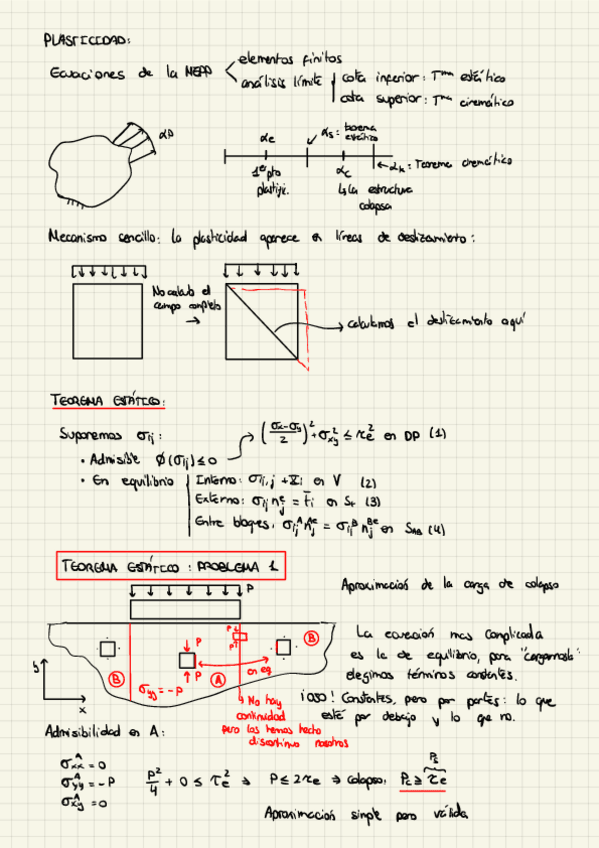 PLASTICIDAD:
Ecuaciones de la
elementos finitos
análisis límite
cota inferior: Tᵐᵃ estático
cota superior: Tᵐᵃ cinemático
αP
αe
1er pto
plastif.
αs: teorema
estático
αc
↳ la estructura
colapsa
αk: Teorema cinemático
Mecanismo sencillo: la plasticidad aparece en líneas de deslizamiento:
No calculo el
campo completo
→
calculamos el deslizamiento aquí
TEOREMA ESTÁTICO:
Suponemos σij:
• Admisible Φ(σij) ≤ 0
((σx-σy)/2)² + σxy² ≤ τe² en DP (1)
• En equilibrio
Interno: σij,j + Xi en V (2)
Externo: σij nj^e = t̄i en St (3)
Entre bloques: σij^A nj^Ae = σij^B nj^Be en SAB (4)
TEOREMA ESTÁTICO: PROBLEMA 1
P
Aproximación de la carga de colapso
La ecuación mas complicada
es la de equilibrio, para "cargarnosla"
elegimos términos constantes.
¡OJO! Constantes, pero por partes: lo que
está por debajo y lo que no.
P
P
P
P
B
A
B
en eq
σyy = -P
y
x
↳ No hay
continuidad
pero los hemos hecho
discontinuo nosotros
Admisibilidad en A:
σxx^A = 0
σyy^A = -P
σxy^A = 0
P²/4 + 0 ≤ τe² → P ≤ 2τe → colapso: Pc ≥ τe
Ps
Aproximación simple pero válida